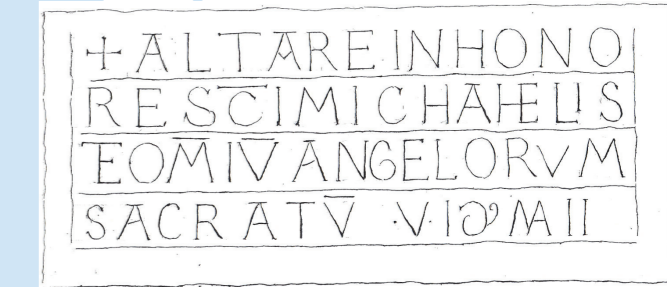 +ALTAREINHONO
RESC̅IMICHAHELIS
TEOM̅IV̅ANGELORVM
SACRATV̅ ·V·IƆ9MAII